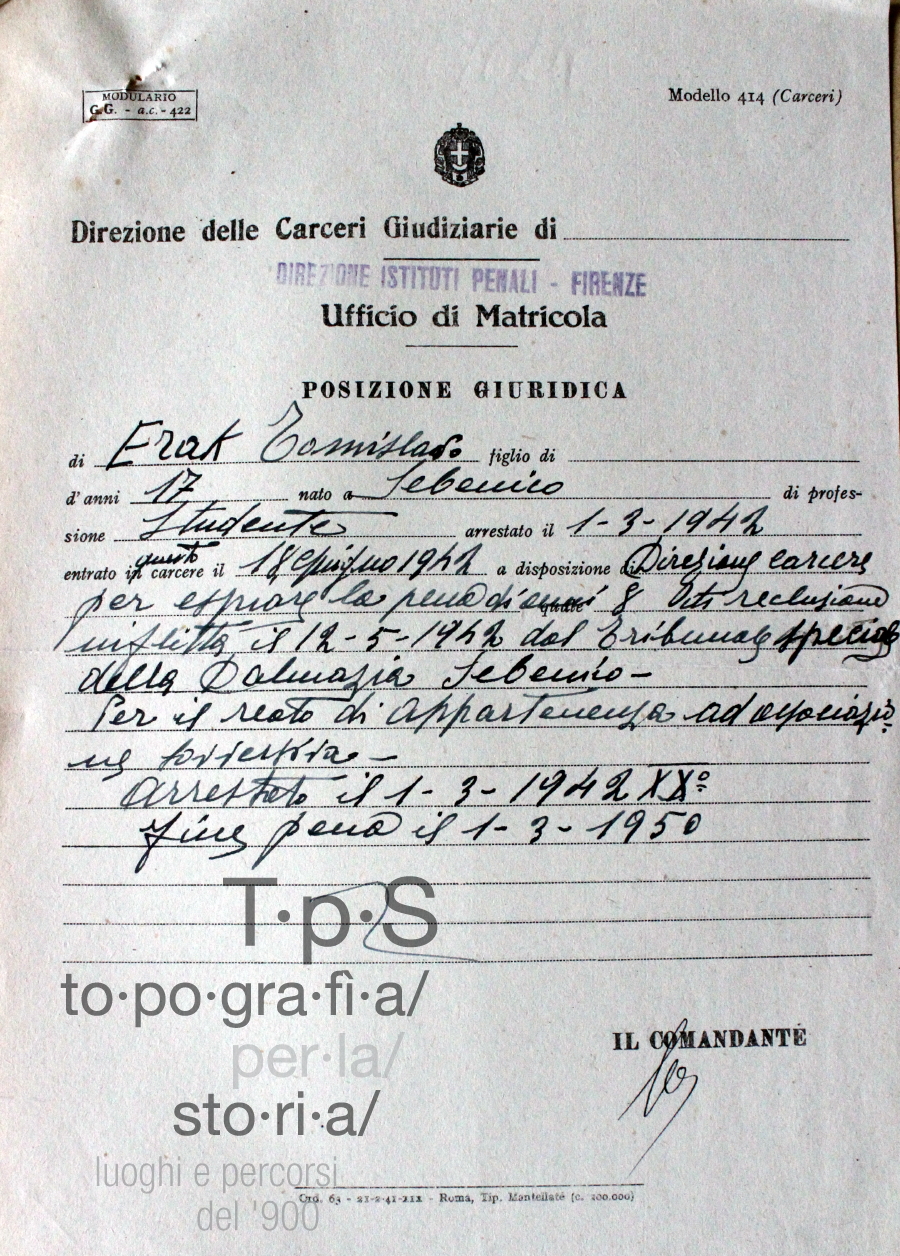 MODULARIO
G.G. - a.c. - 422
Modello 414 (Carceri)
Direzione delle Carceri Giudiziarie di
DIREZIONE ISTITUTI PENALI - FIRENZE
Ufficio di Matricola
POSIZIONE GIURIDICA
di Erak Tomislavo figlio di
d'anni 17 nato a Sebenico di profes-
sione Studente arrestato il 1-3-1942
questo
entrato in carcere il 18 giugno 1942 a disposizione di Direzione carcere
per espiare la pena di anni 8 reclusione
inflitta il 12-5-1942 dal Tribunale speciale
della Dalmazia Sebenico -
Per il reato di appartenenza ad associazio
ne -
Arrestato il 1-3-1942 XX°
fine pena il 1-3-1950
T·p·S
to·po·gra·fì·a/
per·la/
sto·ri·a/
luoghi e percorsi
del '900
IL COMANDANTE
Ord. 63 - 21-2-41-XIX - Roma, Tip. Mantellate (c. 200.000)